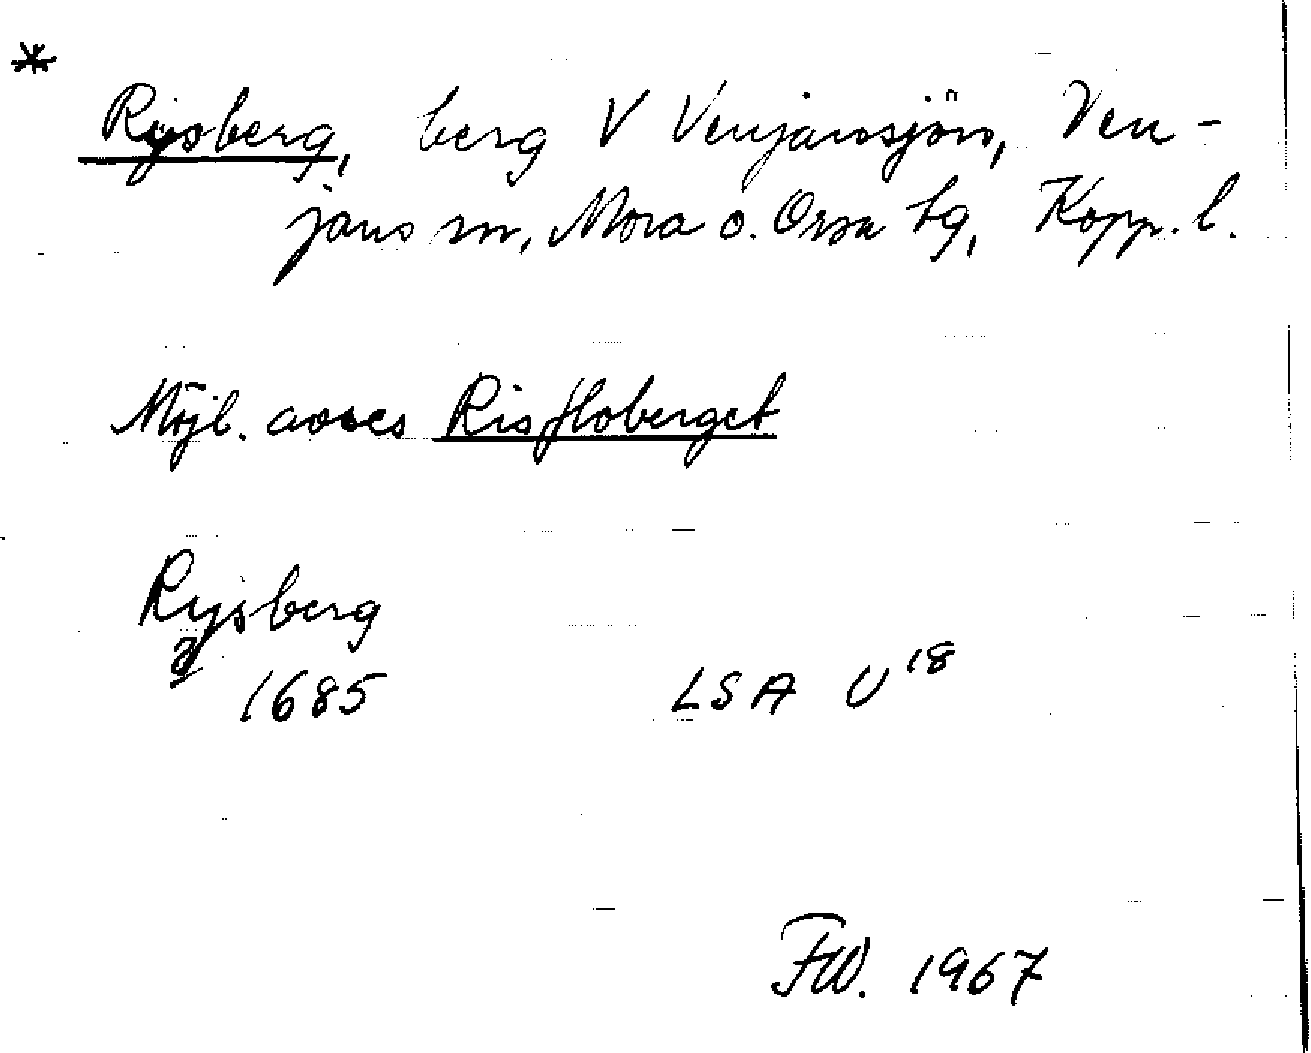 *
Rysberg, berg V Venjanssjön, Ven-
jans sn, Mora o. Orsa tg, Kopp. l.
Möjl. avses Risfloberget
Rysberg
1685 LSA U 18
FW. 1967